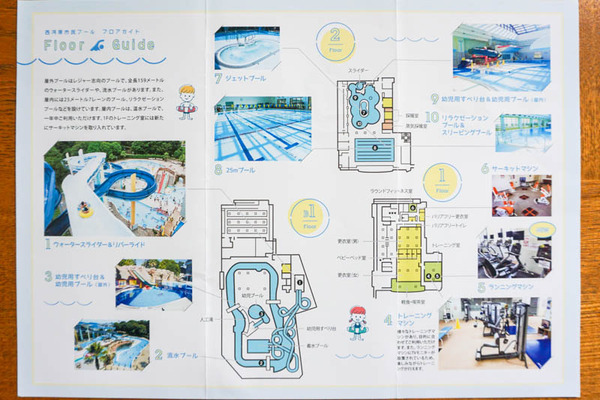 西河原市民プール フロアガイド
Floor Guide
屋外プールはレジャー志向のプールで、全長159メートル
のウォータースライダーや、流水プールがあります。また、
屋内には25メートル7レーンのプール、リラクゼーション
プールなどを設けています。屋内プールは、温水プールで、
一年中ご利用いただけます。1Fのトレーニング室には新た
にサーキットマシンを取り入れています。
1 ウォータースライダー&リバーライド
3 幼児用すべり台&
幼児用プール(屋外)
2 流水プール
7 ジェットプール
8 25mプール
2
Floor
スライダー
採暖室
9 幼児用すべり台&幼児用プール(屋内)
10 リラクゼーション
プール&
スリーピングプール
6 サーキットマシン
1
Floor
ラウンドフィットネス室
バリアフリー更衣室
バリアフリートイレ
更衣室(男)
トレーニング室
ベビーベッド室
更衣室(女)
軽食・喫茶室
5 ランニングマシン
B1
Floor
幼児プール
人工滝
幼児用すべり台
着水プール
4 トレーニング
マシン